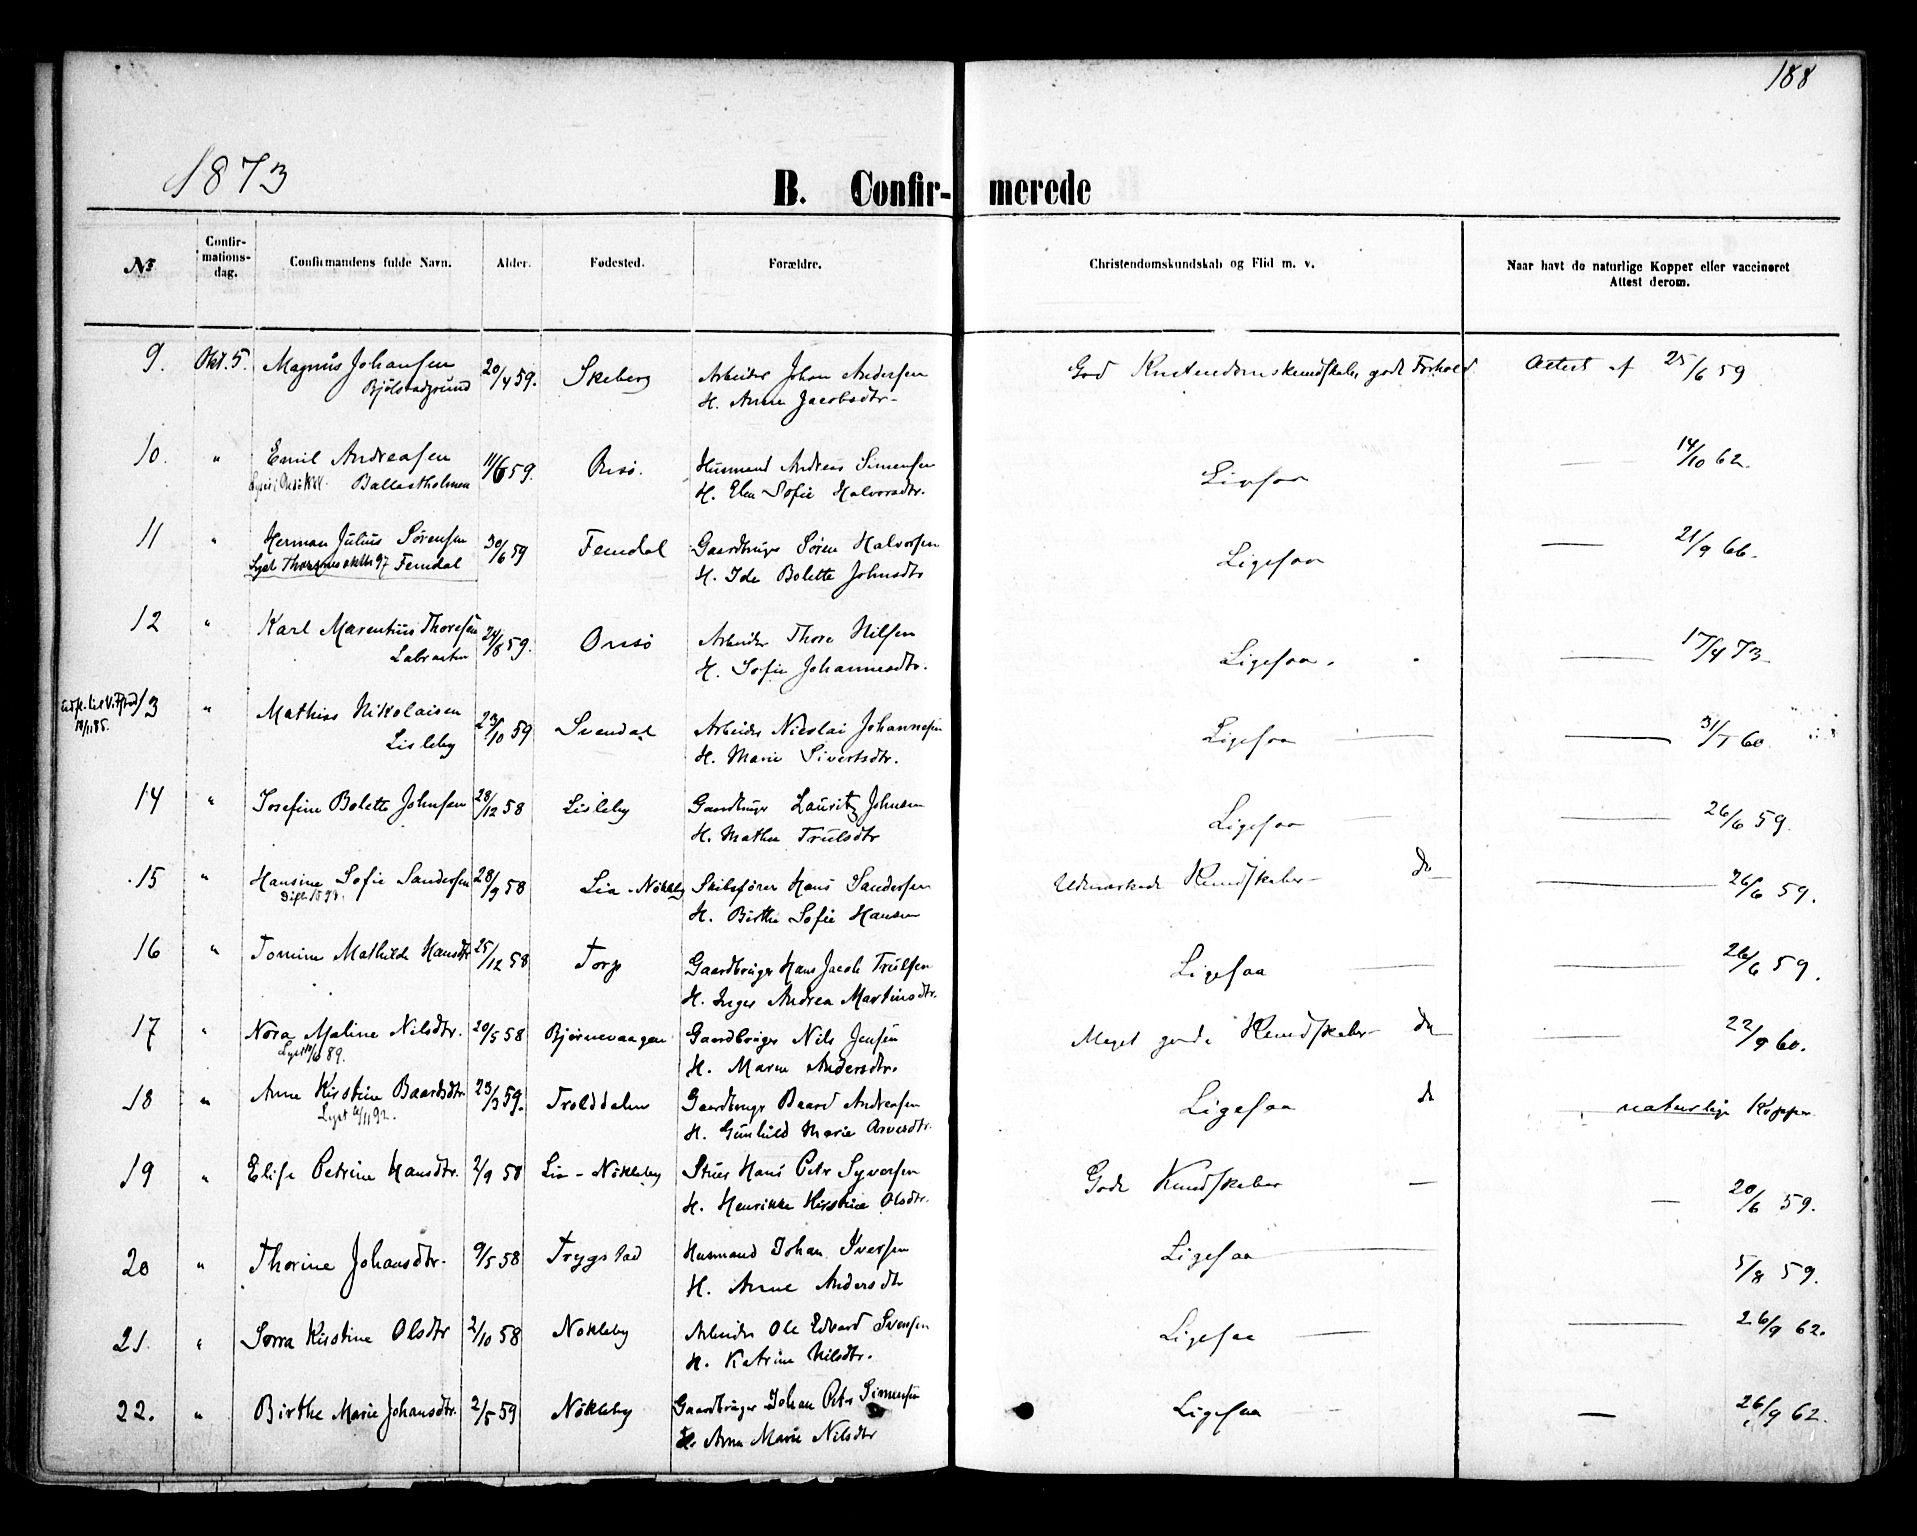 188
1873
B. Confirmerede
№
Confirmationsdag.
Confirmandens fulde Navn.
Alder.
Fødested.
Forældre.
Christendomskundskab og Flid m. v.
Naar havt de naturlige Kopper eller vaccineret Attest derom.
9. Okt. 5. Magnus Johansen 20/4 59. Skeberg Arbeider Johan Andersen God Kristendomskundskab, godt Forhold Attest af 25/6 59
Bjølstadgrund H. Anne Jacobsdtr.
10. " Emil Andreasen 11/6 59. Onsø. Husmand Andreas Simensen Ligesaa — 14/10 62.
Ballastholmen H. Elen Sofie Halvorsdtr.
11 " Herman Julius Sørensen 30/6 59 Femdal Gaardbruger Søren Halvorsen Ligesaa — 21/9 66.
Femdal H. Ide Bolette Johnsdtr
12 " Karl Marentius Thoresen 24/8 59. Onsø Arbeider Thore Nilsen Ligesaa. — 17/4 73
Labraaten H. Sofie Johannesdtr.
13 " Mathias Nikolaisen 23/10 59 Svendal Arbeider Nicolai Johannesen Ligesaa — — 31/5 60
18/11 85. Lisleby H. Marie Sivertsdtr.
14 " Josefine Bolette Johnsen 28/12 58 Lisleby Gaardbruger Lauritz Johnsen Ligesaa — — 26/6 59.
H. Mathea Trulsdtr
15 " Hansine Sofie Sandersen 28/9 58 Lia-Nökleby Skibsfører Hans Sandersen Udmærkede Kundskaber — do — 26/6 59.
H. Birthe Sofie Hansen
16 " Tomine Mathilde Hansdtr 25/12 58 Torp Gaardbruger Hans Jacob Trulsen Ligesaa — — 26/6 59.
H. Inger Andrea Martinsdtr.
17 " Nora Maline Nilsdtr. 20/5 58 Bjørnevaagen Gaardbruger Nils Jensen Meget gode Kundskaber — do — 22/9 60.
H. Maren Andersdtr.
18 " Anne Kirstine Baardsdtr. 23/3 59. Trolddalen Gaardbruger Baard Andreasen Ligesaa do naturlige Kopper
Lyst 11 92. H. Gunhild Marie
19 " Elise Petrine Hansdtr. 2/9 58 Lia-Nökleby Hans Petr Syversen Gode Kundskaber — — 20/6 59.
H. Henrikke Kirstine Olsdtr.
20 " Thorine Johansdtr. 9/5 58 Trygstad Husmand Johan Iversen Ligesaa — 5/8 59.
H. Anne Andersdtr
21. " Kirstine Olsdtr 2/10 58 Nökleby Arbeider Ole Edvard Svensen Ligesaa — — 26/9 62.
H. Katrine Nilsdtr.
22. " Birthe Marie Johansdtr. 2/5 59 Nökleby Gaardbruger Johan Peter Simensen Ligesaa — — 26/9 62.
H. Anne Marie Nilsdtr